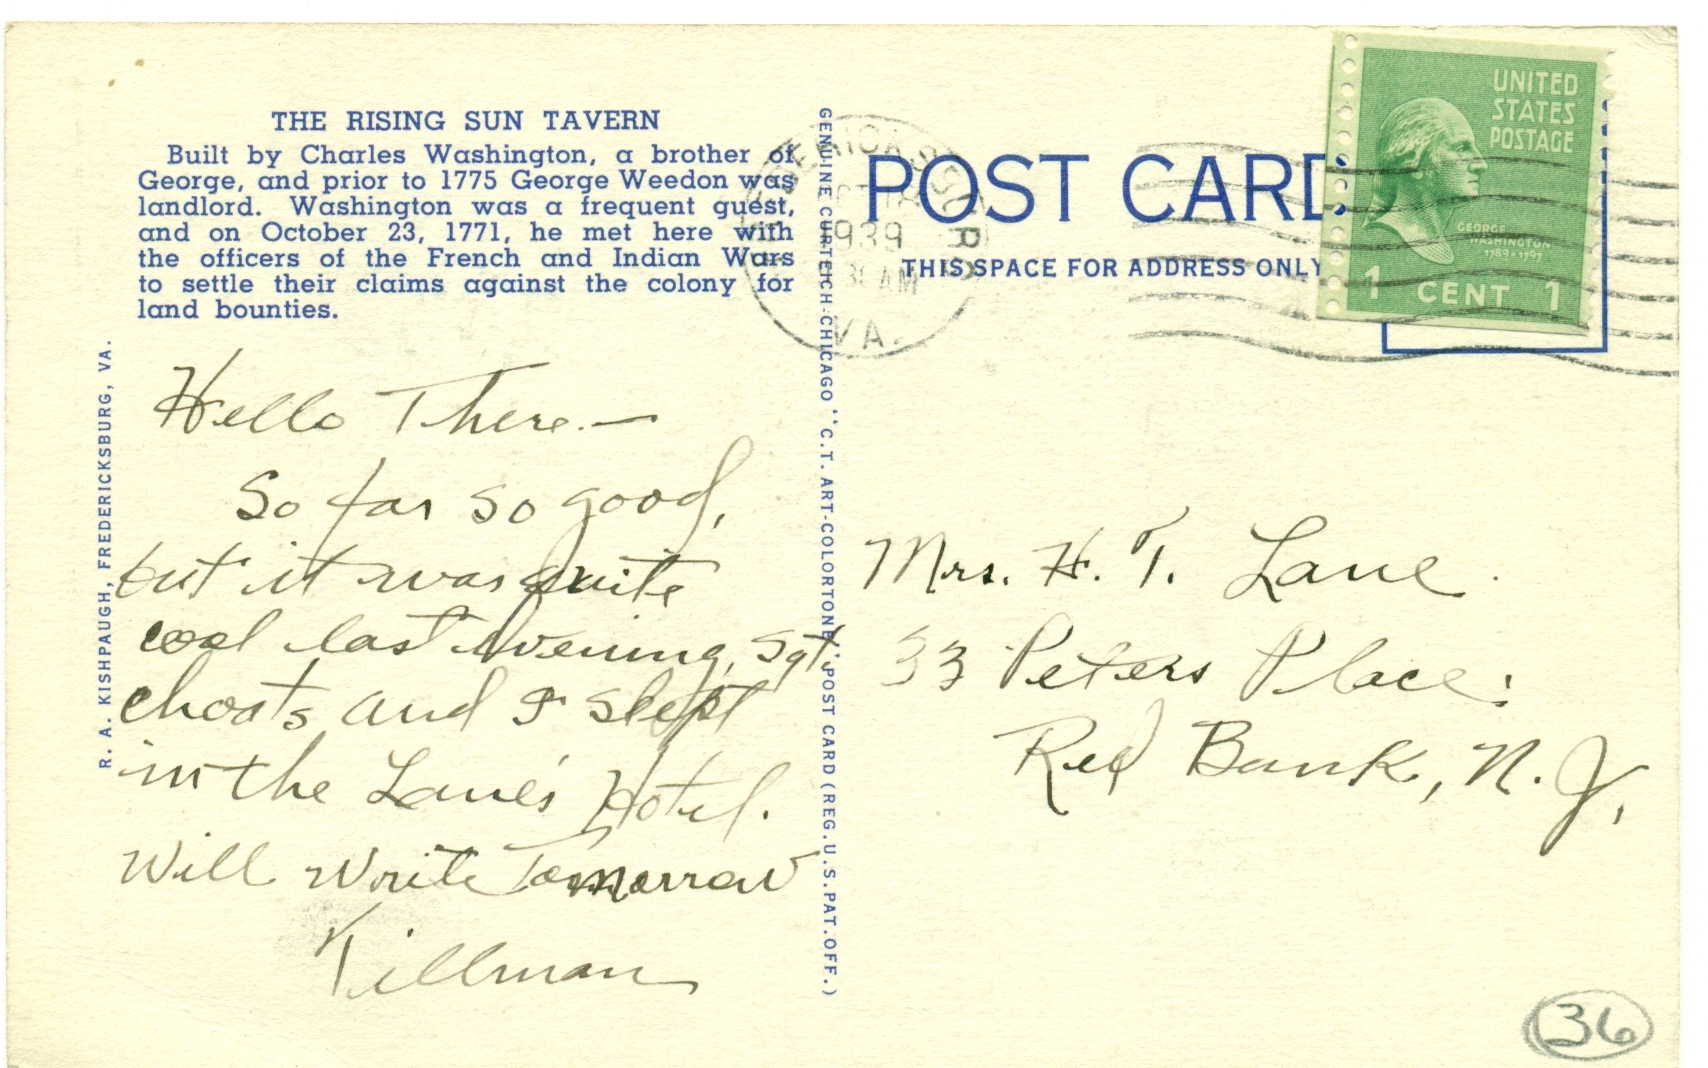 THE RISING SUN TAVERN
Built by Charles Washington, a brother of
George, and prior to 1775 George Weedon was
landlord. Washington was a frequent guest,
and on October 23, 1771, he met here with
the officers of the French and Indian Wars
to settle their claims against the colony for
land bounties.
R. A. KISHPAUGH, FREDERICKSBURG, VA.
Hello There.—
So far so good,
but it was quite
cool last evening, Sgt.
choats and I slept
in the Lane's Hotel.
Will Write Tomorrow
Tillman
GENUINE CURTEICH-CHICAGO "C.T. ART-COLORTONE" POST CARD (REG. U.S. PAT. OFF.)
1939
AM
VA.
POST CARD
THIS SPACE FOR ADDRESS ONLY
UNITED
STATES
POSTAGE
GEORGE
WASHINGTON
1789-1797
1 CENT 1
Mrs. H. T. Lane.
33 Peters Place.
Red Bank, N. J.
36